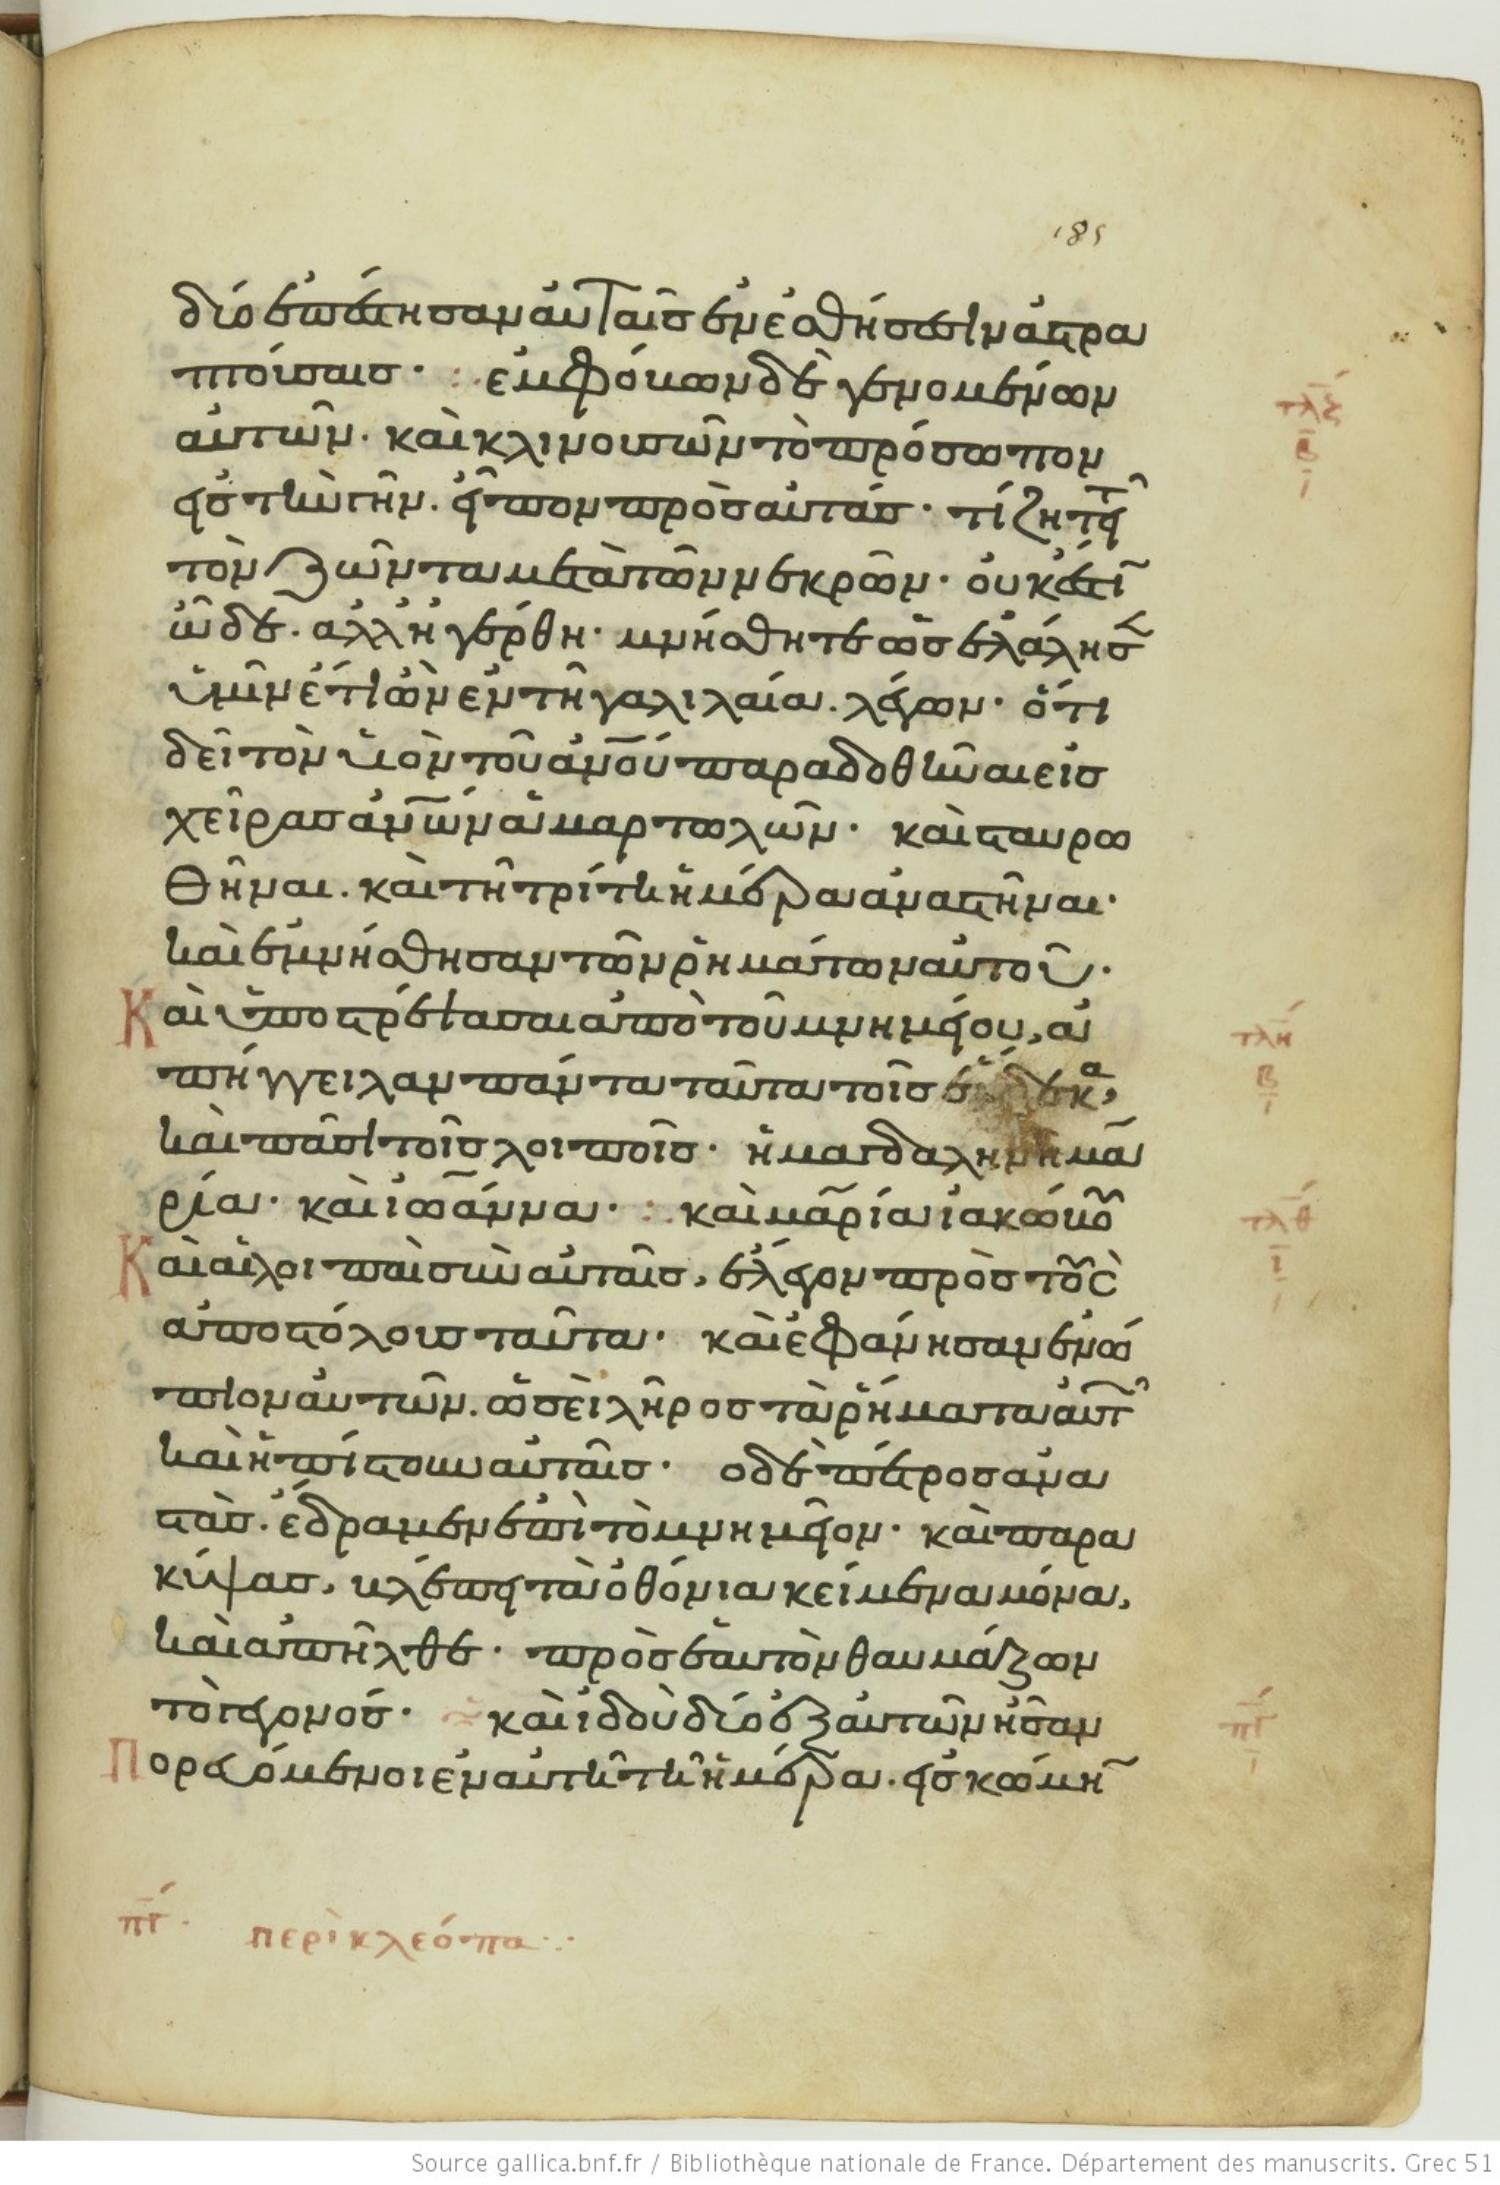 185
δύο ἐπέστησαν αὐταῖς ἐν ἐσθήσεσιν ἀστρα
πτούσαις· ἐμφόβων δὲ γενομένων
αὐτῶν· καὶ κλινουσῶν τὸ πρόσωπον
εἰς τὴν γῆν. εἶπον πρὸς αὐτάς· τί ζητεῖτ
τὸν ζῶντα μετὰ τῶν νεκρῶν· οὐκ ἔστῖ
ὧδε. ἀλλ' ἠγέρθη· μνήσθητε ὡς ἐλάλησ
ὑμῖν ἔτι ὢν ἐν τῇ γαλιλαία. λέγων· ὅτι
δεῖ τὸν υἱὸν τοῦ ἀνου παραδοθῆναι εἰς
χεῖρας ἀνων ἁμαρτωλῶν· καὶ σταυρω
θῆναι. καὶ τῆ τρίτη ἡμέρα ἀναστῆναι·
καὶ ἐμνήσθησαν τῶν ῥημάτων αὐτοῦ·
Καὶ ὑποστρέψασαι ἀπὸ τοῦ μνημείου, ἀ
πήγγειλαν πάντα ταῦτα τοῖς ἕνδεκα,
καὶ πᾶσι τοῖς λοιποῖς· ἡ μαγδαληνὴ μα
ρία· καὶ ἰωάννα· καὶ μαρία ἰακώβου
Καὶ αἱ λοιπαὶ σὺν αὐταῖς, ἔλεγον πρὸς τοὺς
ἀποστόλους ταῦτα· καὶ ἐφάνησαν ἐνώ
πιον αὐτῶν. ὡσεὶ λῆρος τὰ ῥήματα αὐτ
καὶ ἠπίστουν αὐταῖς· ὁ δὲ πέτρος ἀνα
στὰς. ἔδραμεν ἐπὶ τὸ μνημεῖον· καὶ παρα
κύψας, βλέπει τὰ ὀθόνια κείμενα μόνα,
καὶ ἀπῆλθε· πρὸς ἑαυτὸν θαυμάζων
τὸ γεγονός· καὶ ἰδοὺ δύο ἐξ αὐτῶν ἦσαν
Πορευόμενοι ἐν αὐτῆ τῆ ἡμέρα. εἰς κώμῆ
τλζ
β
ι
τλη
β
ι
τλθ
ι
πγ
πγ· περὶ κλεόπα
Source gallica.bnf.fr / Bibliothèque nationale de France. Département des manuscrits. Grec 51